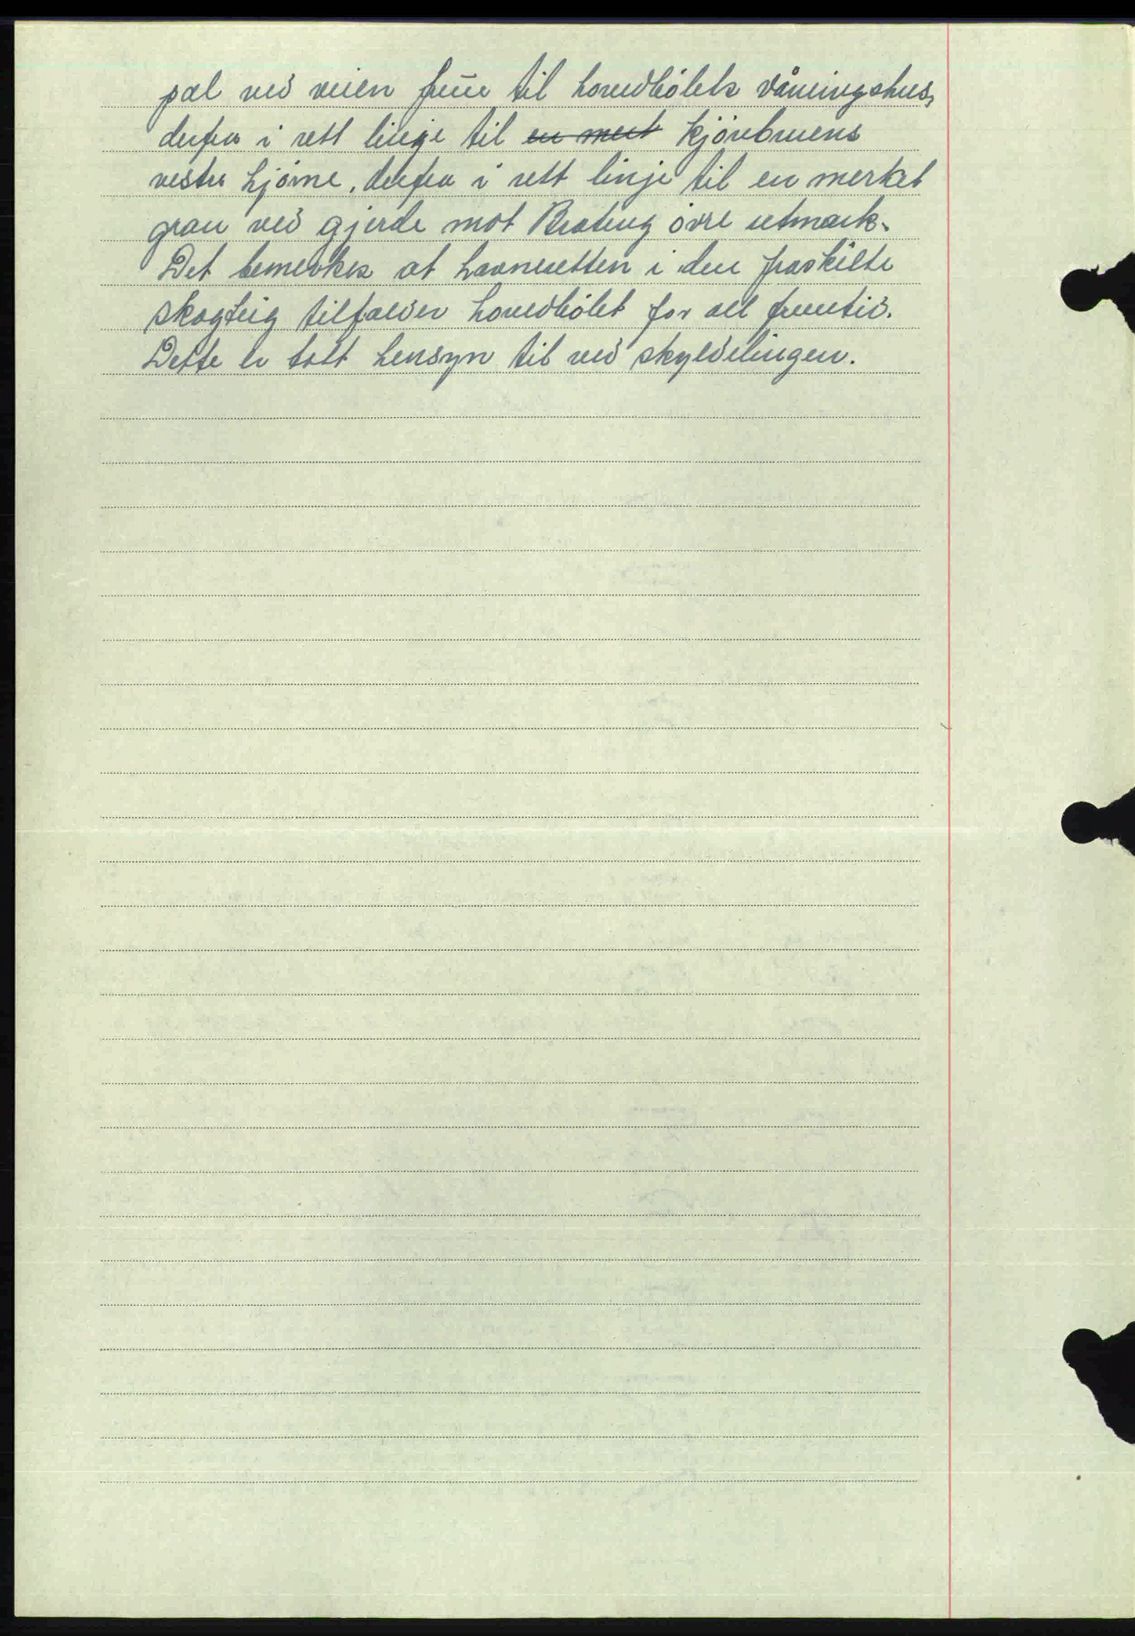 pæl ved veien frem til hovedbølets våningshus,
derfra i rett linje til ~~en mert~~ kjørebruens
vestre hjørne, derfra i rett linje til en merket
gran ved gjerde mot Brateng øvre utmark.
Det bemerkes at havneretten i den fraskilte
skogteig tilfalder hovedbølet for all fremtid.
Dette er tatt hensyn til ved skylddelingen.